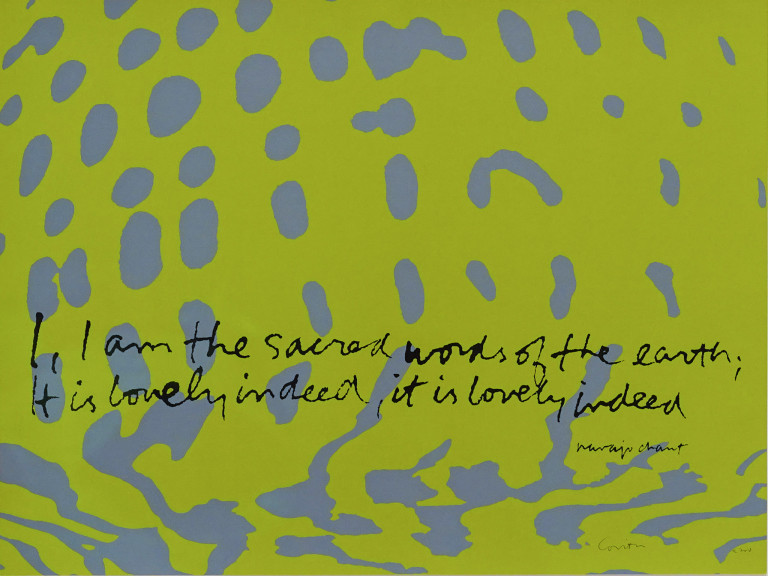 I, I am the sacred words of the earth;
It is lovely indeed, it is lovely indeed
navajo chant